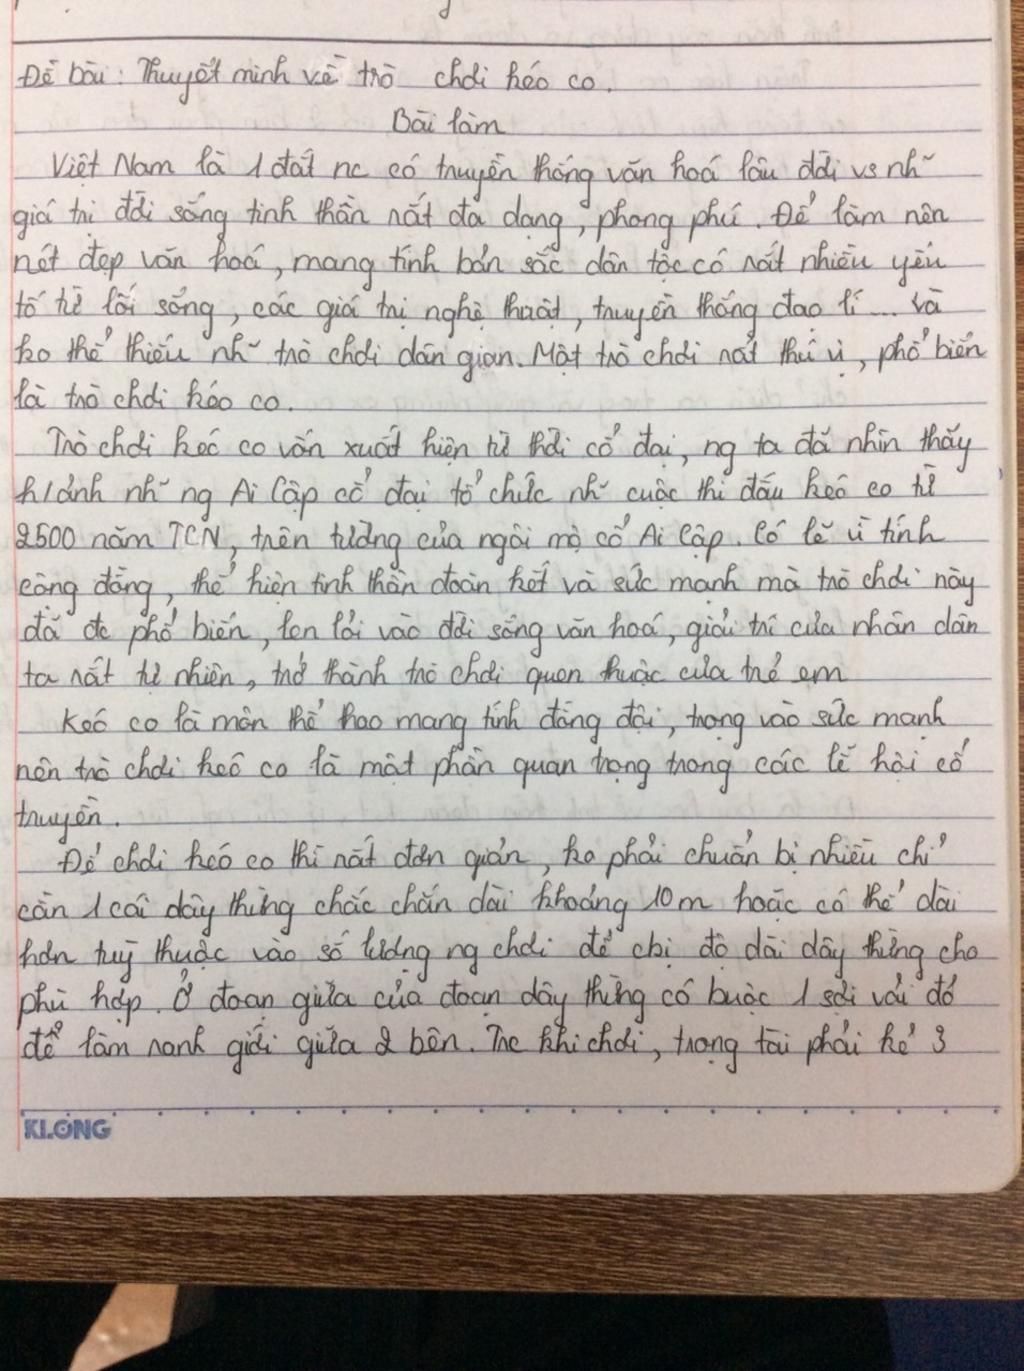 Đề bài: Thuyết minh về trò chơi kéo co.
Bài làm
Việt Nam là 1 đất nc có truyền thống văn hoá lâu đời vs nh~
giá trị đời sống tinh thần rất đa dạng, phong phú. Để làm nên
nét đẹp văn hoá, mang tính bản sắc dân tộc có rất nhiều yếu
tố từ lối sống, các giá trị nghệ thuật, truyền thống đạo lí... và
ko thể thiếu nh~ trò chơi dân gian. Một trò chơi rất thú vị, phổ biến
là trò chơi kéo co.
Trò chơi keó co vốn xuất hiện từ thời cổ đại, ng ta đã nhìn thấy
h/ảnh nh~ ng Ai Cập cổ đại tổ chức nh~ cuộc thi đấu keó co từ
2500 năm TCN, trên tường của ngôi mộ cổ Ai Cập. Có lẽ vì tính
cộng đồng, thể hiện tinh thần đoàn kết và sức mạnh mà trò chơi này
đã đc phổ biến, len lỏi vào đời sống văn hoá, giải trí của nhân dân
ta rất tự nhiên, trở thành trò chơi quen thuộc của trẻ em
Keó co là môn thể thao mang tính đồng đội, trọng vào sức mạnh
nên trò chơi keó co là một phần quan trọng trong các lễ hội cổ
truyền.
Để chơi keó co thì rất đơn giản, ko phải chuẩn bị nhiều chỉ
cần 1 cái dây thừng chắc chắn dài khoảng 10m hoặc có thể dài
hơn tuỳ thuộc vào số lượng ng chơi để cbị độ dài dây thừng cho
phù hợp. Ở đoạn giữa của đoạn dây thừng có buộc 1 sợi vải đỏ
để làm ranh giới giữa 2 bên. Trc khi chơi, trọng tài phải kẻ 3
KLONG